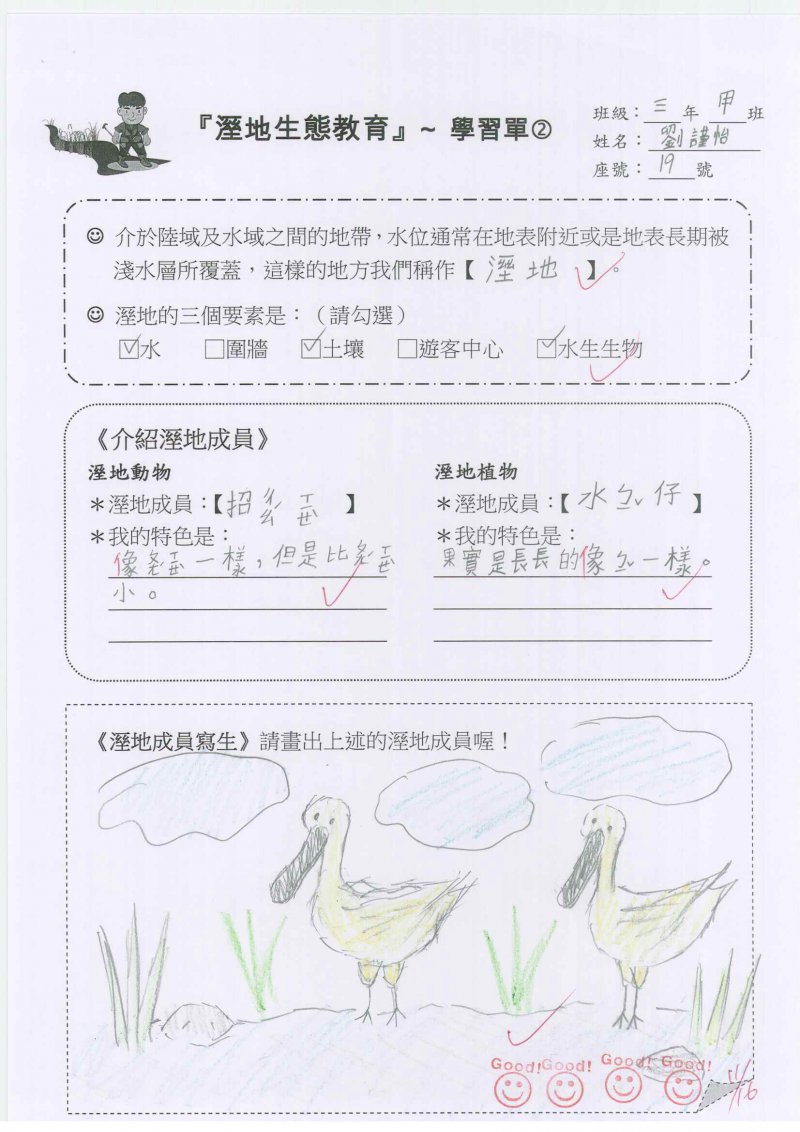 『溼地生態教育』~ 學習單②
班級：三年甲班
姓名：劉謹怡
座號：19號
☺ 介於陸域及水域之間的地帶，水位通常在地表附近或是地表長期被
淺水層所覆蓋，這樣的地方我們稱作【溼地】。
☺ 溼地的三個要素是：（請勾選）
☑水 □圍牆 ☑土壤 □遊客中心 ☑水生生物
《介紹溼地成員》
溼地動物
＊溼地成員：【招ㄔㄠˊㄒㄧㄝˋ】
＊我的特色是：
像ㄆㄤˊㄒㄧㄝˋ一樣，但是比ㄆㄤˊㄒㄧㄝˋ
小。
溼地植物
＊溼地成員：【水ㄅㄧˇ仔】
＊我的特色是：
果實是長長的像ㄅㄧˇ一樣。
《溼地成員寫生》請畫出上述的溼地成員喔！
Good! Good! Good! Good!